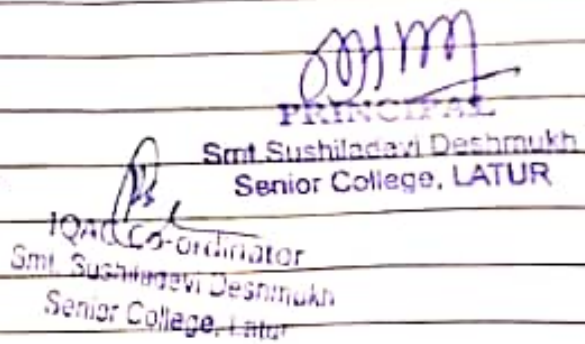 PRINCIPAL
Smt.Sushiladevi Deshmukh
Senior College, LATUR
IQAC Co-ordinator
Smt. Sushiladevi Deshmukh
Senior College, Latur